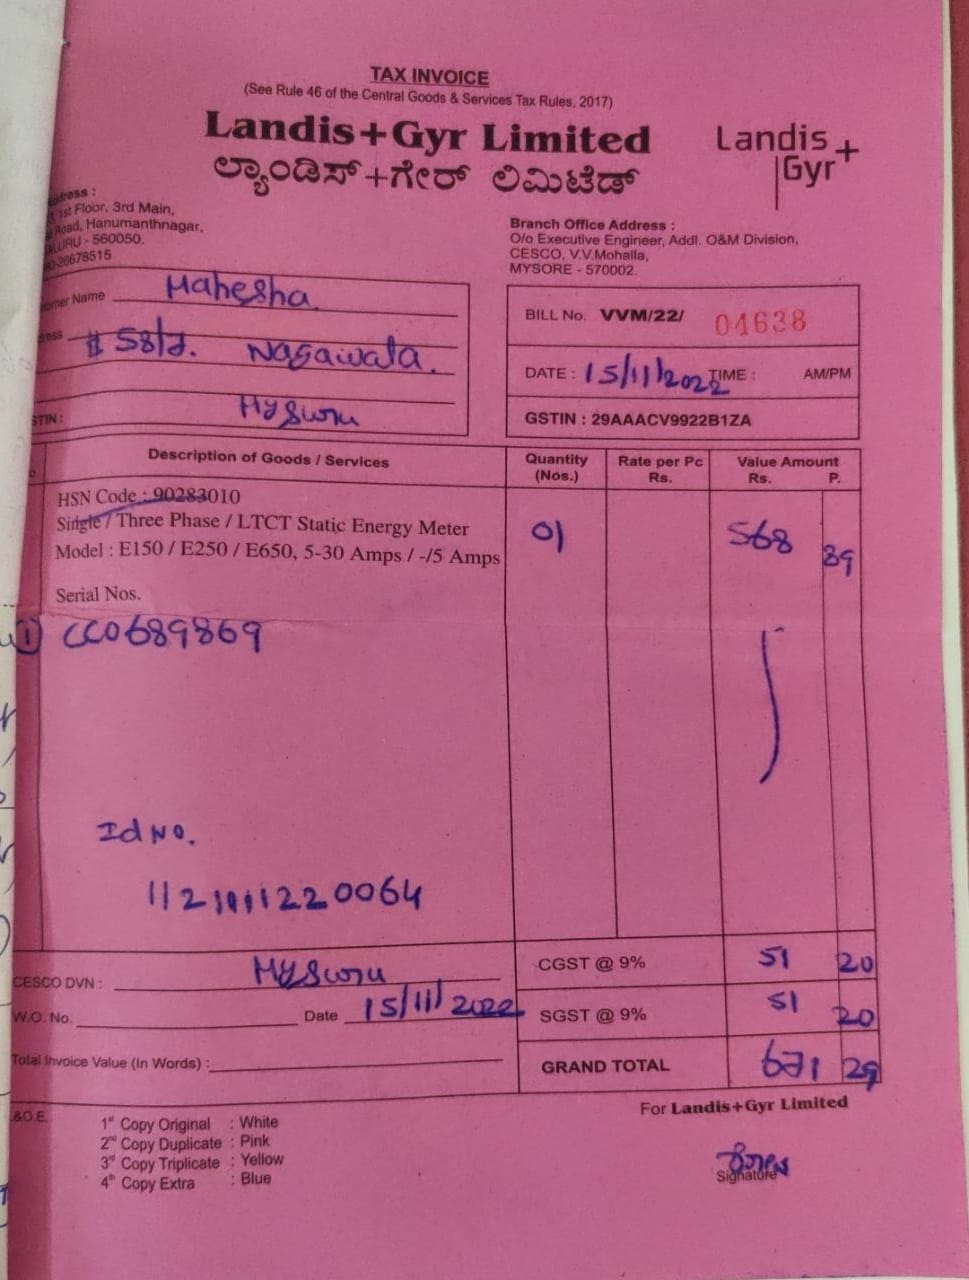 TAX INVOICE
(See Rule 46 of the Central Goods & Services Tax Rules, 2017)
Landis+Gyr Limited
ಲ್ಯಾಂಡಿಸ್+ಗೇರ್ ಲಿಮಿಟೆಡ್
Landis+
Gyr
dress :
1st Floor, 3rd Main,
Road, Hanumanthnagar,
LURU - 560050.
26678515
Branch Office Address :
O/o Executive Engineer, Addl. O&M Division,
CESCO, V.V.Mohalla,
MYSORE - 570002.
omer Name Mahesha
ress # 58/ Nagawala.
Mysuru
STIN :
BILL No. VVM/22/ 04638
DATE : 15/11/2022 TIME : AM/PM
GSTIN : 29AAACV9922B1ZA
Description of Goods / Services Quantity (Nos.) Rate per Pc Rs. Value Amount Rs. P.
HSN Code : 90283010
Single / Three Phase / LTCT Static Energy Meter 01 568 89
Model : E150 / E250 / E650, 5-30 Amps / -/5 Amps
Serial Nos.
1 CC0689869
Id No.
11210111220064
CESCO DVN : Mysuru CGST @ 9% 51 20
W.O. No. Date 15/11/2022 SGST @ 9% 51 20
Total Invoice Value (In Words) : GRAND TOTAL 671 29
&O.E.
For Landis+Gyr Limited
1st Copy Original : White
2nd Copy Duplicate : Pink
3rd Copy Triplicate : Yellow
4th Copy Extra : Blue
Signature